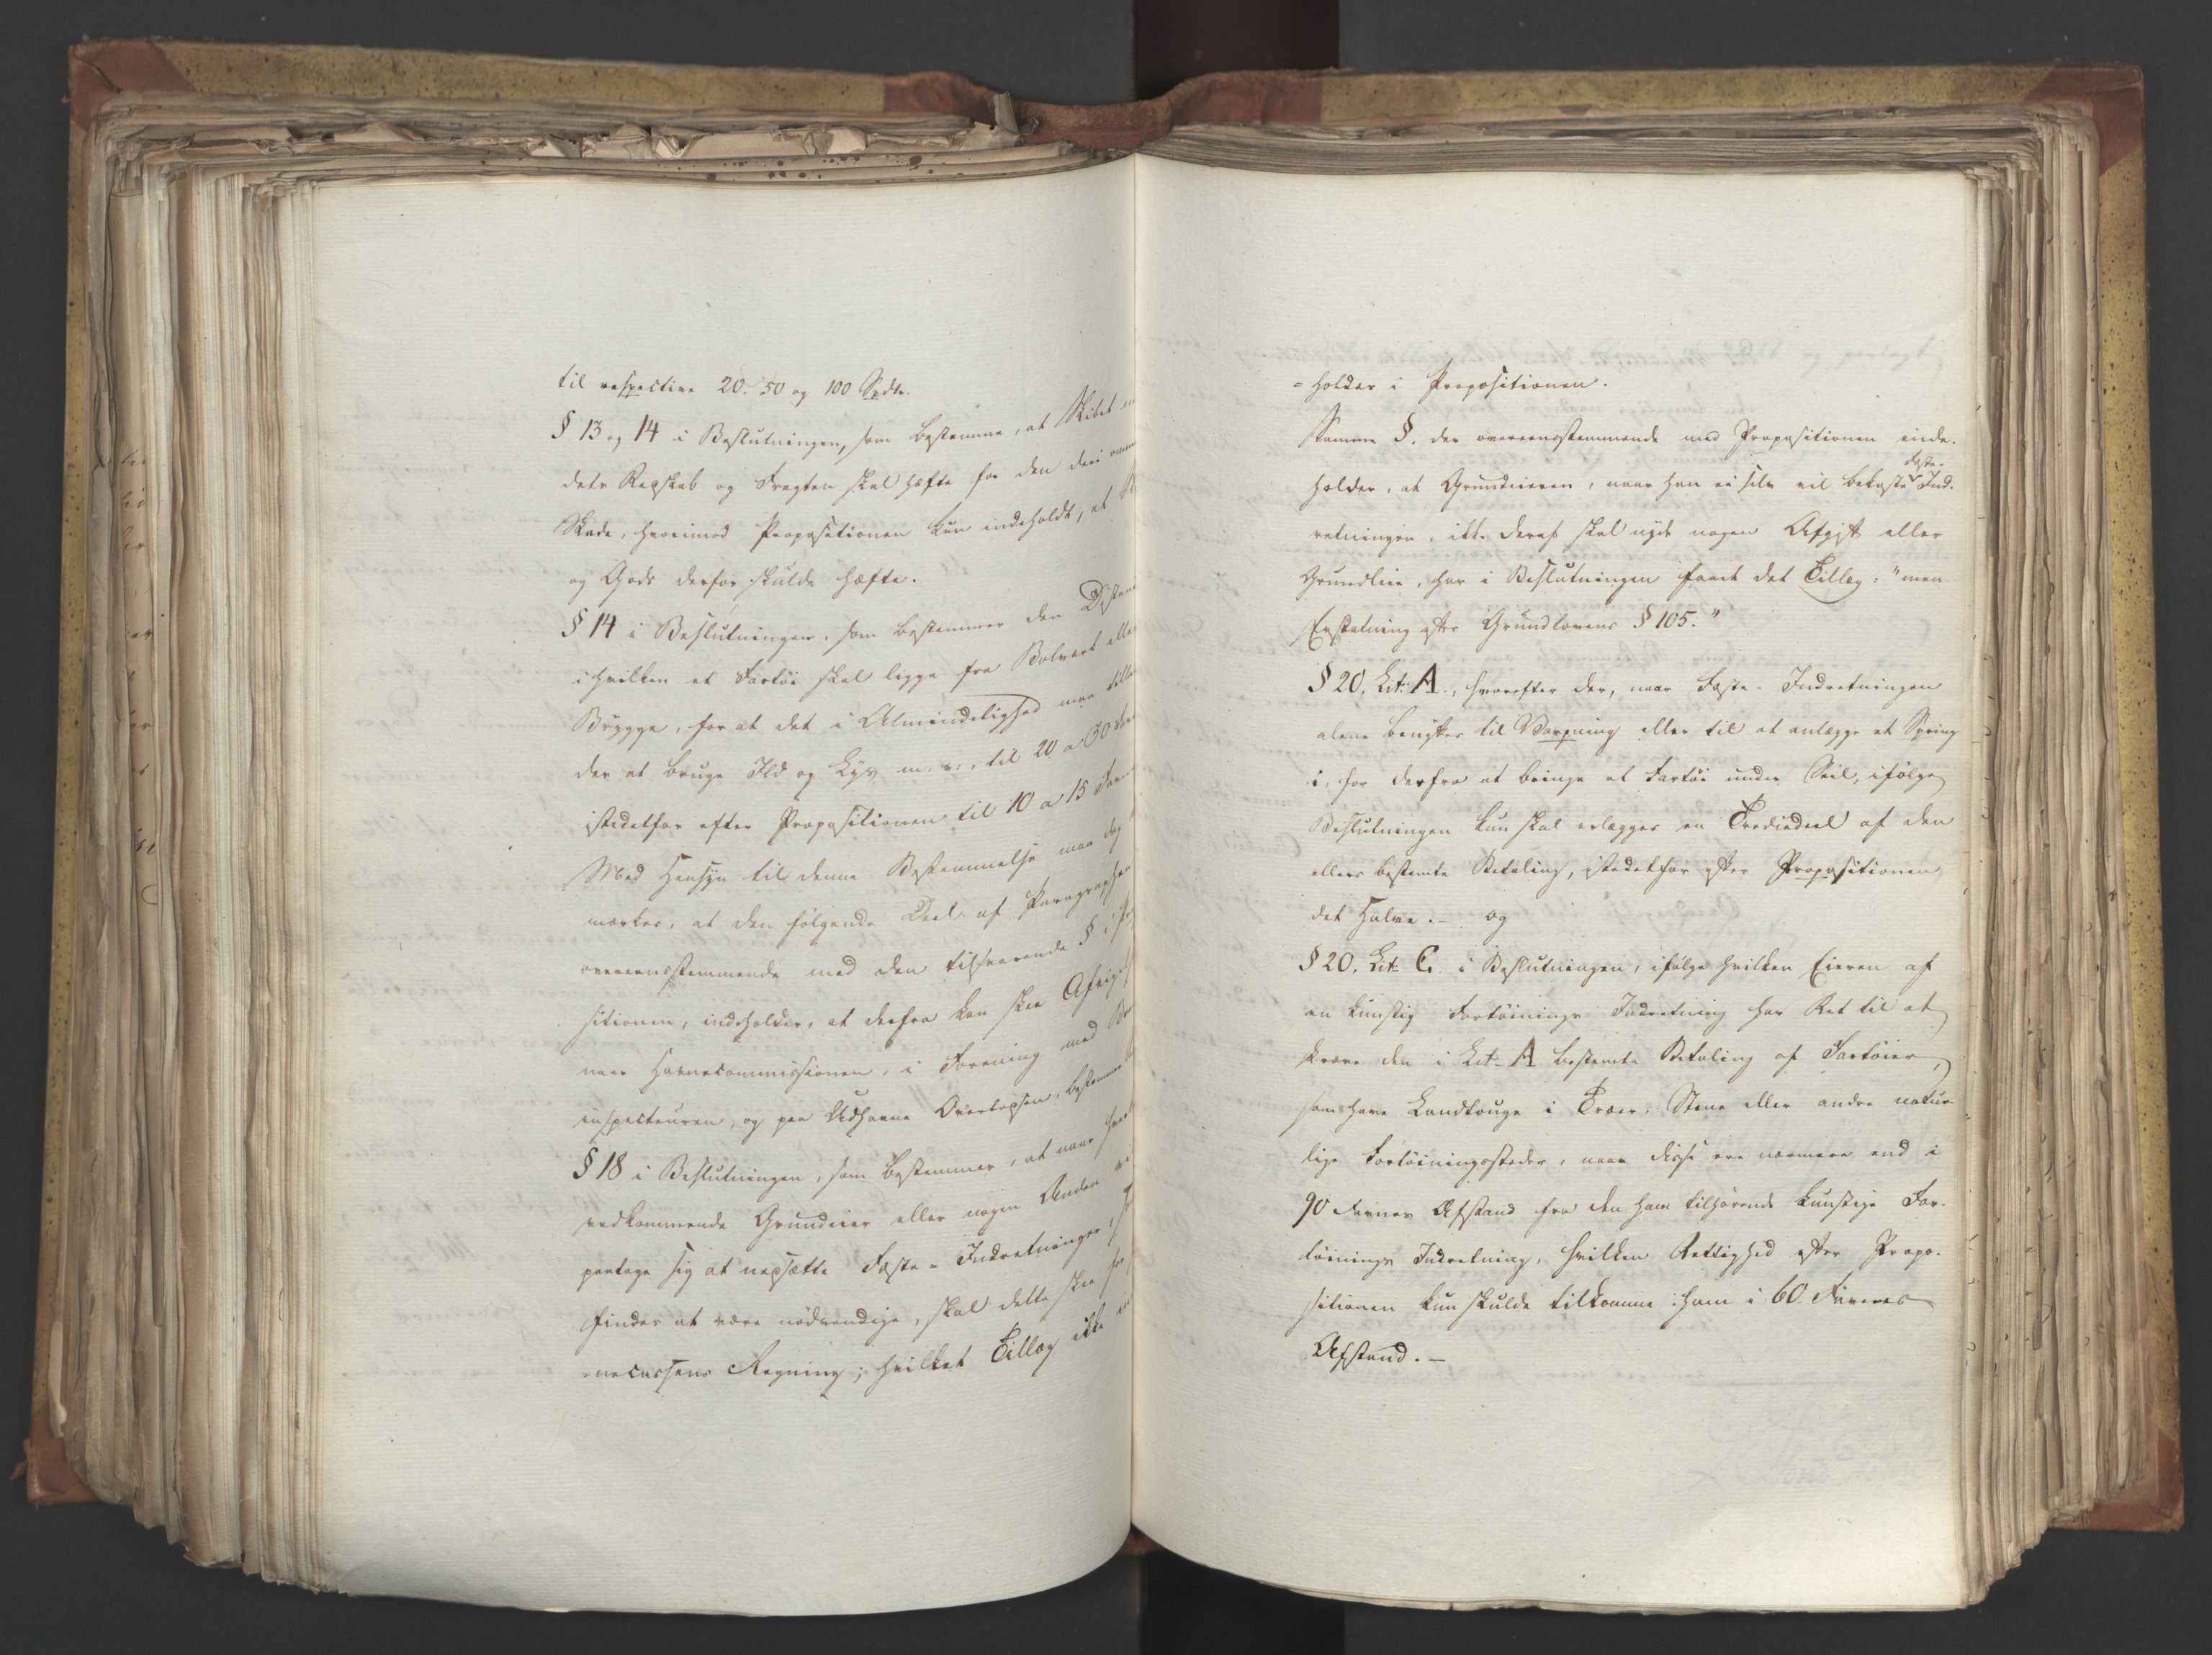 til respective 20. 50 og 100 Spdlr.
§ 13 og 14 i Beslutningen, som bestemme, at Skibet
dets Redskab og Fragten skal hæfte for den deri
Skade, hvorimod Propositionen kun indeholdt, at
og Gods derfor skulde hæfte.
§ 14 i Beslutningen, som bestemmer den Distance
i hvilken et Fartöi skal ligge fra Bolværk eller
Brygge, for at det i Almindelighed maa
der at bruge Ild og Lys m. v., til 20 a 30
istedetfor efter Propositionen til 10 a 15
Med Hensyn til denne Bestemmelse maa dog
mærkes, at den følgende Deel af Paragraphen
overeensstemmende med den tilsvarende § i
sitionen, indeholder, at derfra kan skee
naar Havnecommissionen, i Forening med
inspecteuren, og paa Udhavne Overlodsen, bestemmer
§ 18 i Beslutningen, som bestemmer, at naar
vedkommende Grundeier eller nogen Anden
paatage sig at nedsætte Fæste-Indretninger,
findes at være nödvendige, skal dette skee for
necassens Regning; hvilket Tillæg ikke
=holdes i Propositionen.
Samme §. der overeensstemmende med Propositionen inde-
holder, at Grundeieren, naar han ei selv vil bekoste Fæste-Ind-
retningen, ikke deraf skal nyde nogen Afgift eller
Grundleie, har i Beslutningen faaet det Tillæg: "men
Erstatning efter Grundlovens § 105."
§ 20, Lit. A., hvorefter der, naar Fæste-Indretningen
alene benyttes til Varpning eller til at anlægge et Spring
i, for derfra at bringe et Fartöi under Seil, ifölge
Beslutningen kun skal erlægges en Trediedeel af den
ellers bestemte Betaling, istedetfor efter Propositionen
det Halve. - og
§ 20. Lit. C. i Beslutningen, ifölge hvilken Eieren af
en kunstig Fortöinings Indretning har Ret til at
kræve den i Lit. A bestemte Betaling af Fartöier,
som have Landtouge i Træer, Stene eller andre natur-
lige Fortöiningssteder, naar disse ere nærmere end i
90 Favnes Afstand fra den ham tilhörende kunstige For-
töinings Indretning, hvilken Rettighed efter Propo-
sitionen kun skulde tilkomme ham i 60 Favnes
Afstand. -